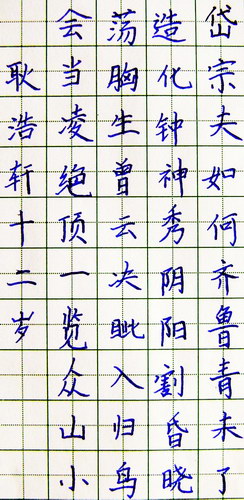 岱宗夫如何齐鲁青未了
造化钟神秀阴阳割昏晓
荡胸生曾云决眦入归鸟
会当凌绝顶一览众山小
耿浩轩十二岁